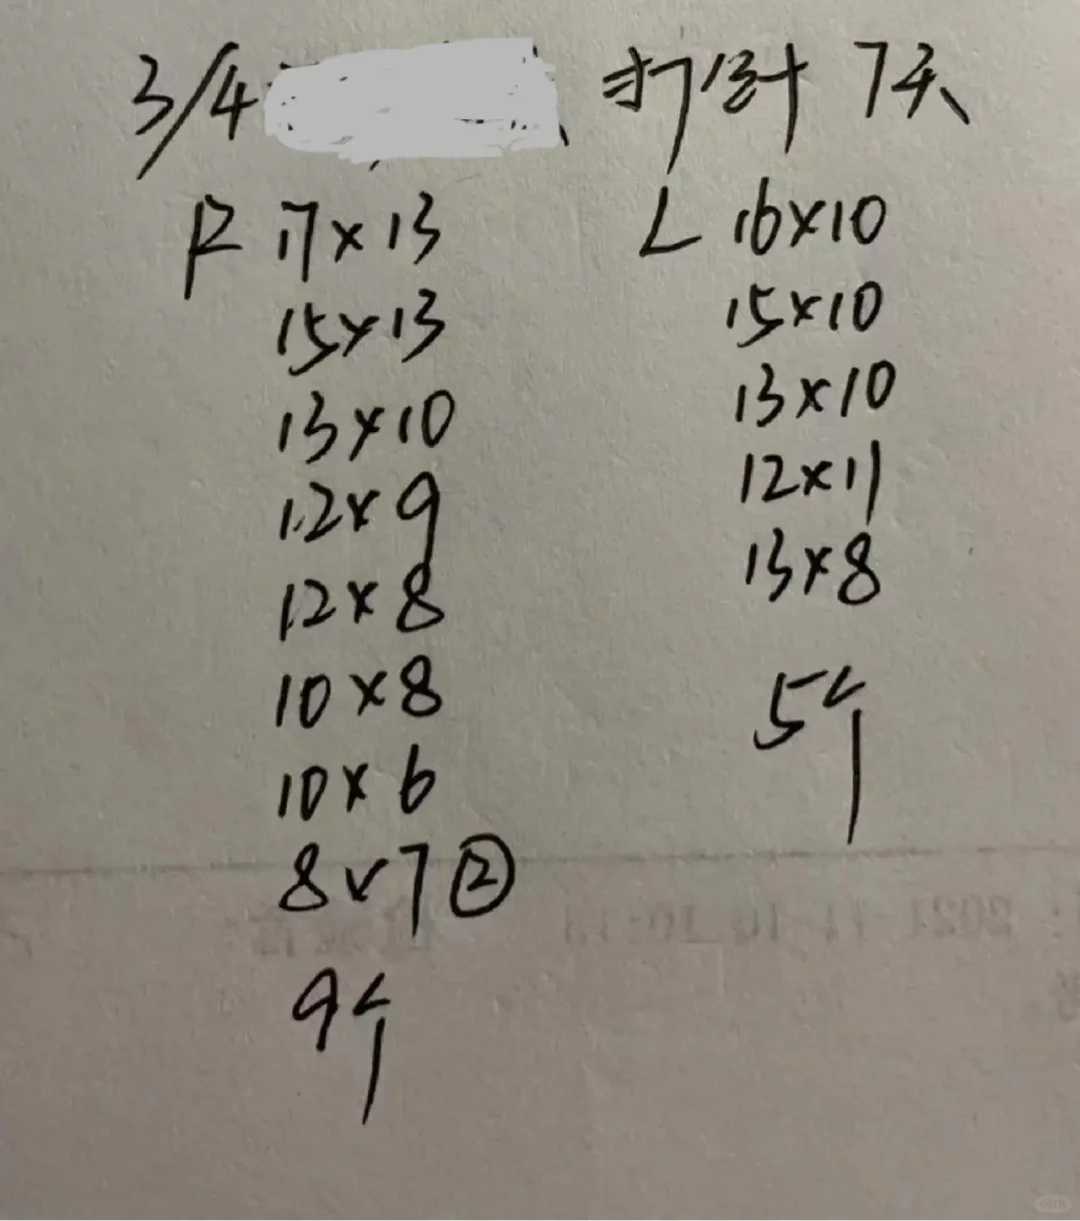 3/4 打针 7天
R 17×13 L 16×10
15×13 15×10
13×10 13×10
12×9 12×11
12×8 13×8
10×8
10×6
8×7 ②
5个
9个